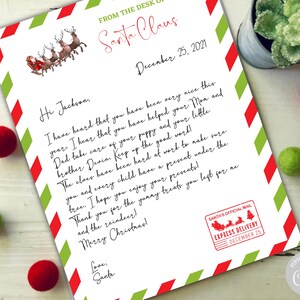 FROM THE DESK OF
Santa Claus
December 25, 2021
Hi Jackson,
I have heard that you have been very nice this
year. I hear that you have helped your Mom and
Dad take care of your puppy and your little
brother Davin. Keep up the good work!
The elves have been hard at work to make sure
you and every child have a present under the
tree. I hope you enjoy your presents!
Thank you for the yummy treats you left for me
and the reindeer!
Merry Christmas!
Love,
Santa
SANTA'S OFFICIAL MAIL
EXPRESS DELIVERY
DECEMBER 25